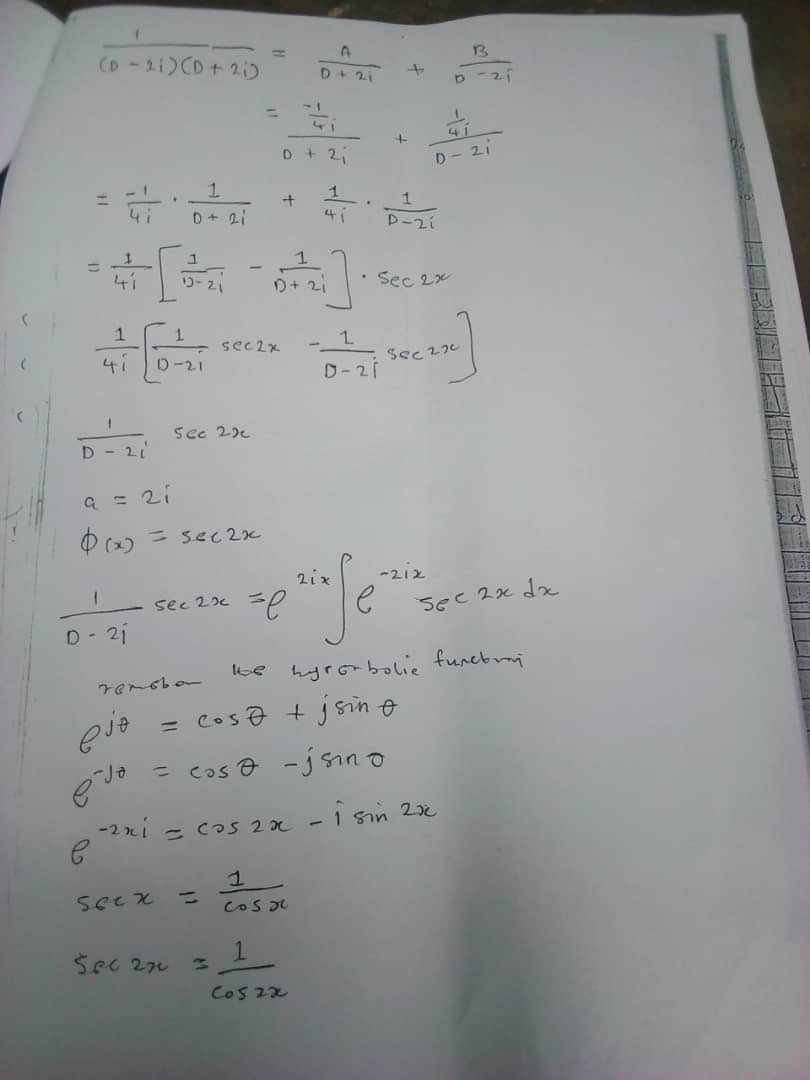 1/((D - 2i)(D + 2i)) = A/(D + 2i) + B/(D - 2i)
= (-1/4i)/(D + 2i) + (1/4i)/(D - 2i)
= -1/4i · 1/(D + 2i) + 1/4i · 1/(D - 2i)
= 1/4i [1/(D - 2i) - 1/(D + 2i)] · sec 2x
1/4i [1/(D - 2i) sec 2x - 1/(D - 2i) sec 2x]
1/(D - 2i) sec 2x
a = 2i
ϕ(x) = sec 2x
1/(D - 2i) sec 2x = e^(2ix) ∫ e^(-2ix) sec 2x dx
e^(jθ) = cos θ + j sin θ
e^(-jθ) = cos θ - j sin θ
e^(-2xi) = cos 2x - i sin 2x
sec x = 1/cos x
sec 2x = 1/cos 2x